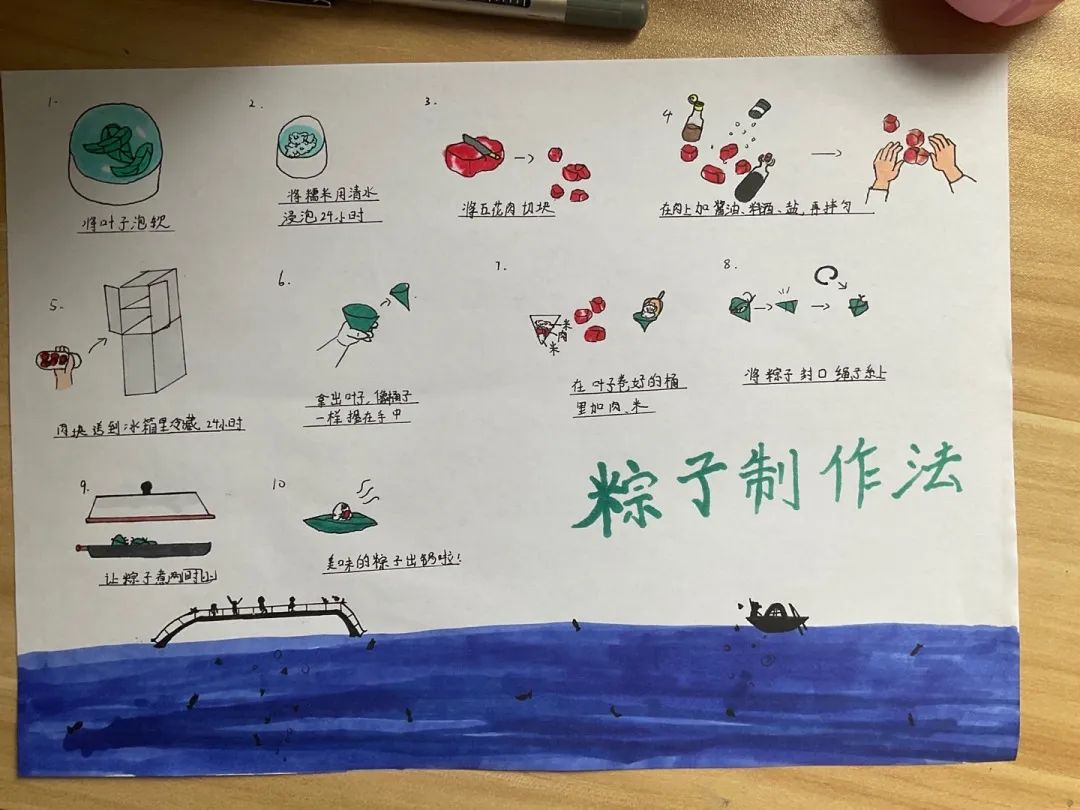 1.
将叶子泡软
2.
将糯米用清水
浸泡24小时
3.
将五花肉切块
4
在肉上加酱油、料酒、盐,再拌匀
5.
肉块送到冰箱里冷藏24小时
6.
拿出叶子,像桶子
一样握在手中
7.
米
肉
米
在叶子卷好的桶
里加肉、米
8.
将粽子封口绳子系上
9.
让粽子煮两时
10
美味的粽子出锅啦!
粽子制作法